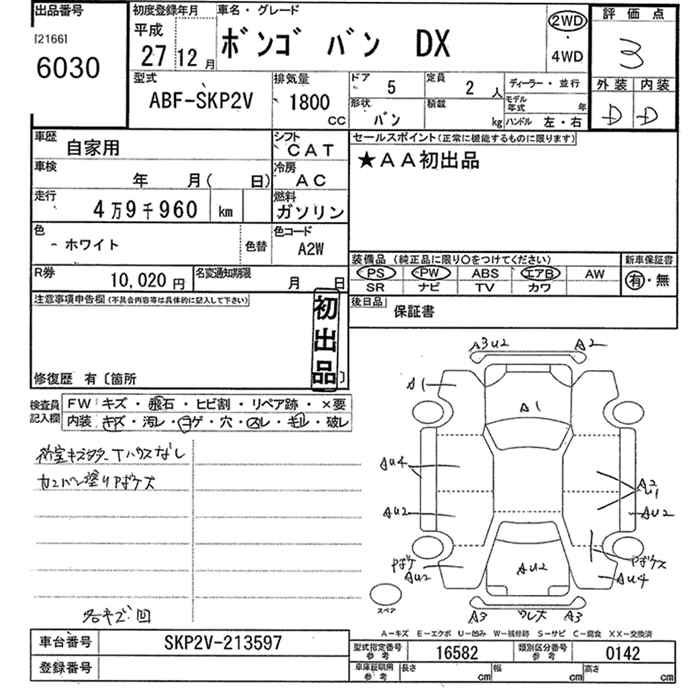 出品番号 初度登録年月 車名・グレード 評価点
[2166] 平成 ボンゴ バン DX 2WD 3
6030 27 12月 4WD
型式 排気量 ドア 5 定員 2人 ディーラー・並行 外装 内装
ABF-SKP2V 1800 cc 形状 バン 積載 kg モデル年式 年 D D
ハンドル 左・右
車歴 自家用 シフト CAT セールスポイント(正常に機能するものに限ります)
車検 年 月( 日) 冷房 AC ★AA初出品
走行 4万9千960 km 燃料 ガソリン
色 ホワイト 色替 色コード A2W 装備品(純正品に限り○をつけてください) 新車保証書
PS PW ABS エアB AW 有・無
R券 10,020円 名変通知期限 月 日 SR ナビ TV カワ
注意事項申告欄(不具合内容等は具体的に記入して下さい) 後日品 保証書
初出品
修復歴 有〔箇所 〕
検査員記入欄 FW キズ・飛石・ヒビ割・リペア跡・×要
内装 キズ・汚レ・コゲ・穴・スレ・キレ・破レ
A3U2 A2
A1
A1
荷室キズ
AU4 A2
AU2 AU2
AU2
AU2 AU4
A3 A3
スペア
A-キズ E-エクボ U-凹み W-補修跡 S-サビ C-腐食 XX-交換済
車台番号 SKP2V-213597 型式指定番号 参考 16582 類別区分番号 参考 0142
登録番号 車庫証明用 参考 長さ cm 幅 cm 高さ cm